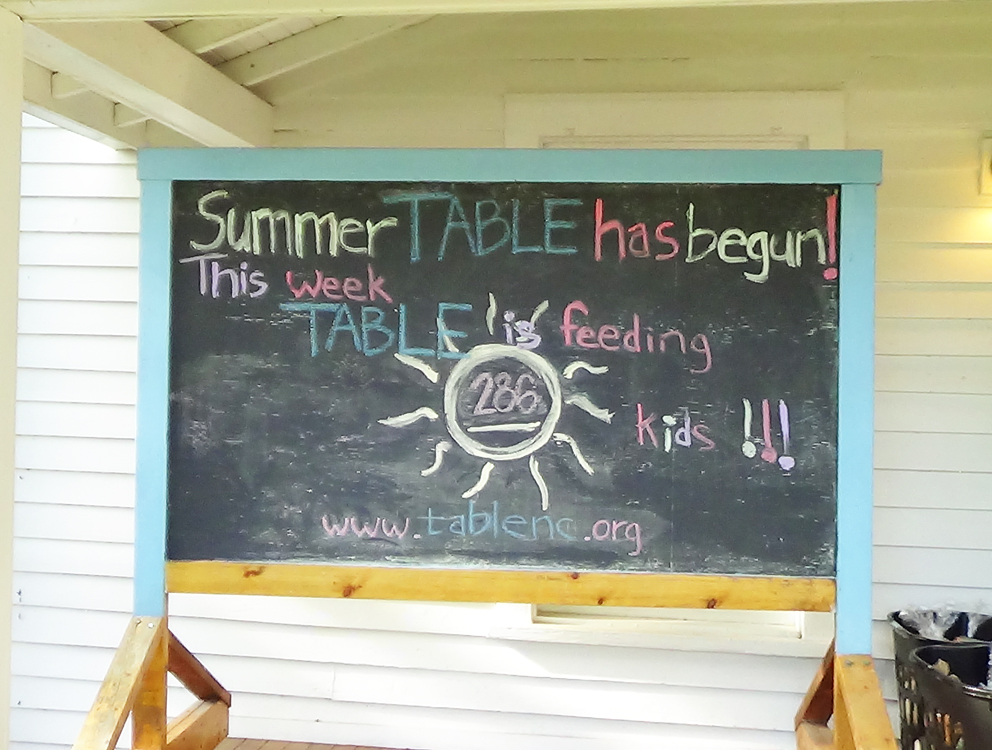 Summer TABLE has begun!
This week
TABLE is feeding
286
kids !!!
www.tablenc.org